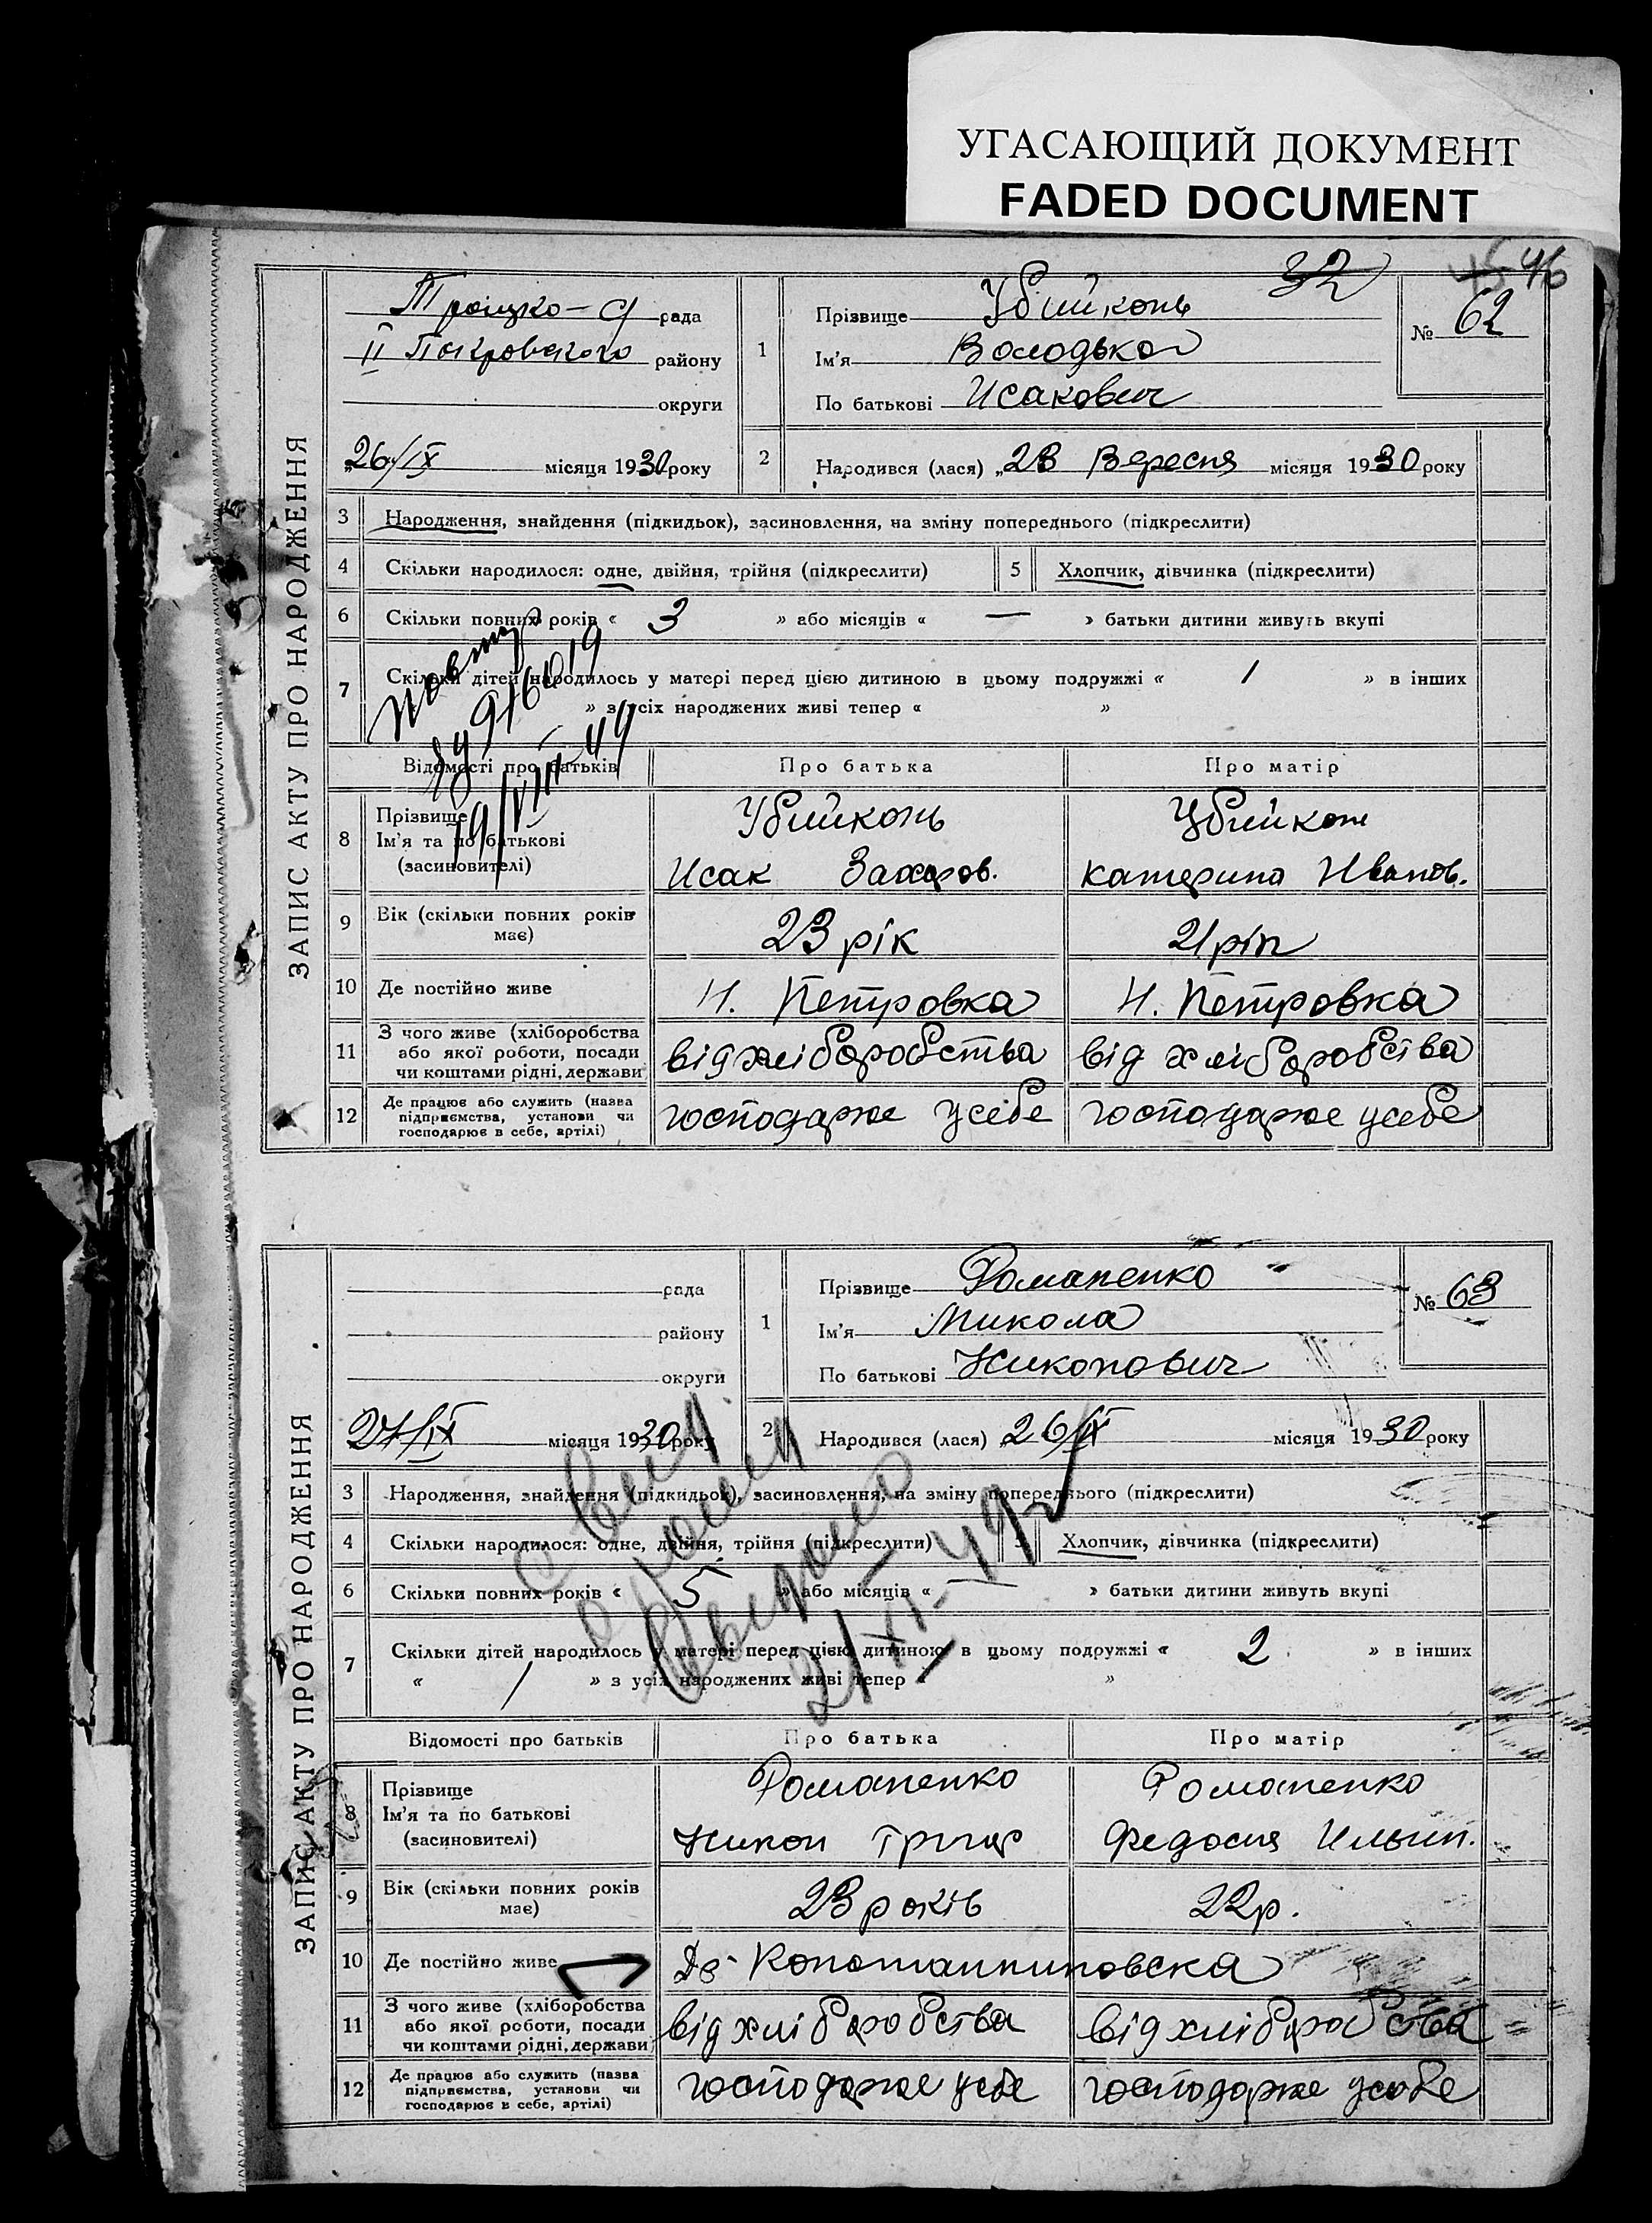 УГАСАЮЩИЙ ДОКУМЕНТ
FADED DOCUMENT
32
45 46
ЗАПИС АКТУ ПРО НАРОДЖЕННЯ
Троицко-а рада
II Покровского району
округи
"26/IX місяця 1930 року
1
Прізвище Убийконь
Ім'я Володька
По батькові Исакович
№ 62
2 Народився (лася) „23 Вересня місяця 1930 року
3 Народження, знайдення (підкидьок), засиновлення, на зміну попереднього (підкреслити)
4 Скільки народилося: одне, двійня, трійня (підкреслити) 5 Хлопчик, дівчинка (підкреслити)
6 Скільки повних років « 3 » або місяців « — » батьки дитини живуть вкупі
7 Скільки дітей народилось у матері перед цією дитиною в цьому подружжі « 1 » в інших
» з усіх народжених живі тепер « »
19/VIII-49
Відомості про батьків Про батька Про матір
8 Прізвище
Ім'я та по батькові
(засиновителі)
Убийконь Убийконь
Исак Захаров. Катерина Иванов.
9 Вік (скільки повних років має) 23 рік 21 рік
10 Де постійно живе Н. Петровка Н. Петровка
11 З чого живе (хліборобства
або якої роботи, посади
чи коштами рідні, держави
від хліборобства від хліборобства
12 Де працює або служить (назва
підприємства, установи чи
господарює в себе, артілі)
господарює усебе господарює усебе
ЗАПИС АКТУ ПРО НАРОДЖЕННЯ
рада
району
округи
27/IX місяця 1930 року
1
Прізвище Романенко
Ім'я Микола
По батькові Никонович
№ 63
2 Народився (лася) „26/IX місяця 1930 року
3 Народження, знайдення (підкидьок), засиновлення, на зміну попереднього (підкреслити)
4 Скільки народилося: одне, двійня, трійня (підкреслити) 5 Хлопчик, дівчинка (підкреслити)
6 Скільки повних років « 5 » або місяців « — » батьки дитини живуть вкупі
7 Скільки дітей народилось у матері перед цією дитиною в цьому подружжі « 2 » в інших
« / » з усіх народжених живі тепер « »
21/XI-49
Відомості про батьків Про батька Про матір
8 Прізвище
Ім'я та по батькові
(засиновителі)
Романенко Романенко
Никон Григор Федосия Ильин.
9 Вік (скільки повних років має) 23 років 22 р.
10 Де постійно живе Константиновска
11 З чого живе (хліборобства
або якої роботи, посади
чи коштами рідні, держави
від хліборобства від хліборобства
12 Де працює або служить (назва
підприємства, установи чи
господарює в себе, артілі)
господарює усебе господарює усебе